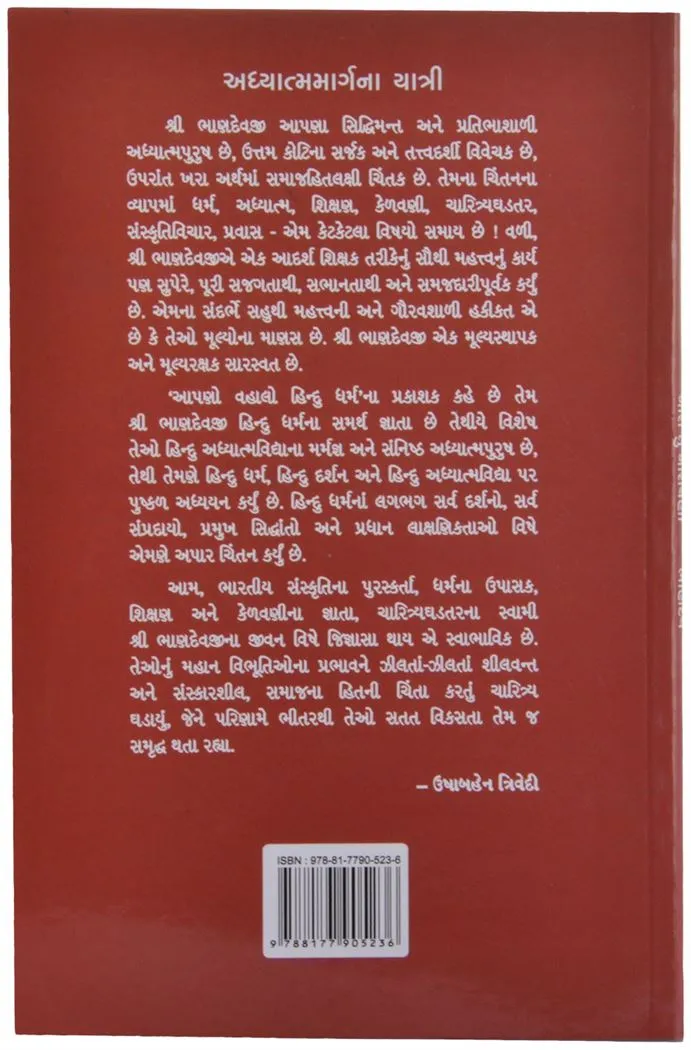 અધ્યાત્મમાર્ગના યાત્રી
શ્રી ભાણદેવજી આપણા સિદ્ધિમન્ત અને પ્રતિભાશાળી
અધ્યાત્મપુરુષ છે, ઉત્તમ કોટિના સર્જક અને તત્ત્વદર્શી વિવેચક છે,
ઉપરાંત ખરા અર્થમાં સમાજહિતલક્ષી ચિંતક છે. તેમના ચિંતનના
વ્યાપમાં ધર્મ, અધ્યાત્મ, શિક્ષણ, કેળવણી, ચારિત્ર્યઘડતર,
સંસ્કૃતિવિચાર, પ્રવાસ - એમ કેટકેટલા વિષયો સમાય છે ! વળી,
શ્રી ભાણદેવજીએ એક આદર્શ શિક્ષક તરીકેનું સૌથી મહત્ત્વનું કાર્ય
પણ સુપેરે, પૂરી સજગતાથી, સભાનતાથી અને સમજદારીપૂર્વક કર્યું
છે. એમના સંદર્ભે સહુથી મહત્ત્વની અને ગૌરવશાળી હકીકત એ
છે કે તેઓ મૂલ્યોના માણસ છે. શ્રી ભાણદેવજી એક મૂલ્યસ્થાપક
અને મૂલ્યરક્ષક સારસ્વત છે.
‘આપણો વહાલો હિન્દુ ધર્મ’ના પ્રકાશક કહે છે તેમ
શ્રી ભાણદેવજી હિન્દુ ધર્મના સમર્થ જ્ઞાતા છે તેથીયે વિશેષ
તેઓ હિન્દુ અધ્યાત્મવિદ્યાના મર્મજ્ઞ અને સંનિષ્ઠ અધ્યાત્મપુરુષ છે,
તેથી તેમણે હિન્દુ ધર્મ, હિન્દુ દર્શન અને હિન્દુ અધ્યાત્મવિદ્યા પર
પુષ્કળ અધ્યયન કર્યું છે. હિન્દુ ધર્મનાં લગભગ સર્વ દર્શનો, સર્વ
સંપ્રદાયો, પ્રમુખ સિદ્ધાંતો અને પ્રધાન લાક્ષણિકતાઓ વિષે
એમણે અપાર ચિંતન કર્યું છે.
આમ, ભારતીય સંસ્કૃતિના પુરસ્કર્તા, ધર્મના ઉપાસક,
શિક્ષણ અને કેળવણીના જ્ઞાતા, ચારિત્ર્યઘડતરના સ્વામી
શ્રી ભાણદેવજીના જીવન વિષે જિજ્ઞાસા થાય એ સ્વાભાવિક છે.
તેઓનું મહાન વિભૂતિઓના પ્રભાવને ઝીલતાં-ઝીલતાં શીલવન્ત
અને સંસ્કારશીલ, સમાજના હિતની ચિંતા કરતું ચારિત્ર્ય
ઘડાયું, જેને પરિણામે ભીતરથી તેઓ સતત વિકસતા તેમ જ
સમૃદ્ધ થતા રહ્યા.
– ઉષાબહેન ત્રિવેદી
ISBN : 978-81-7790-523-6
9 788177 905236